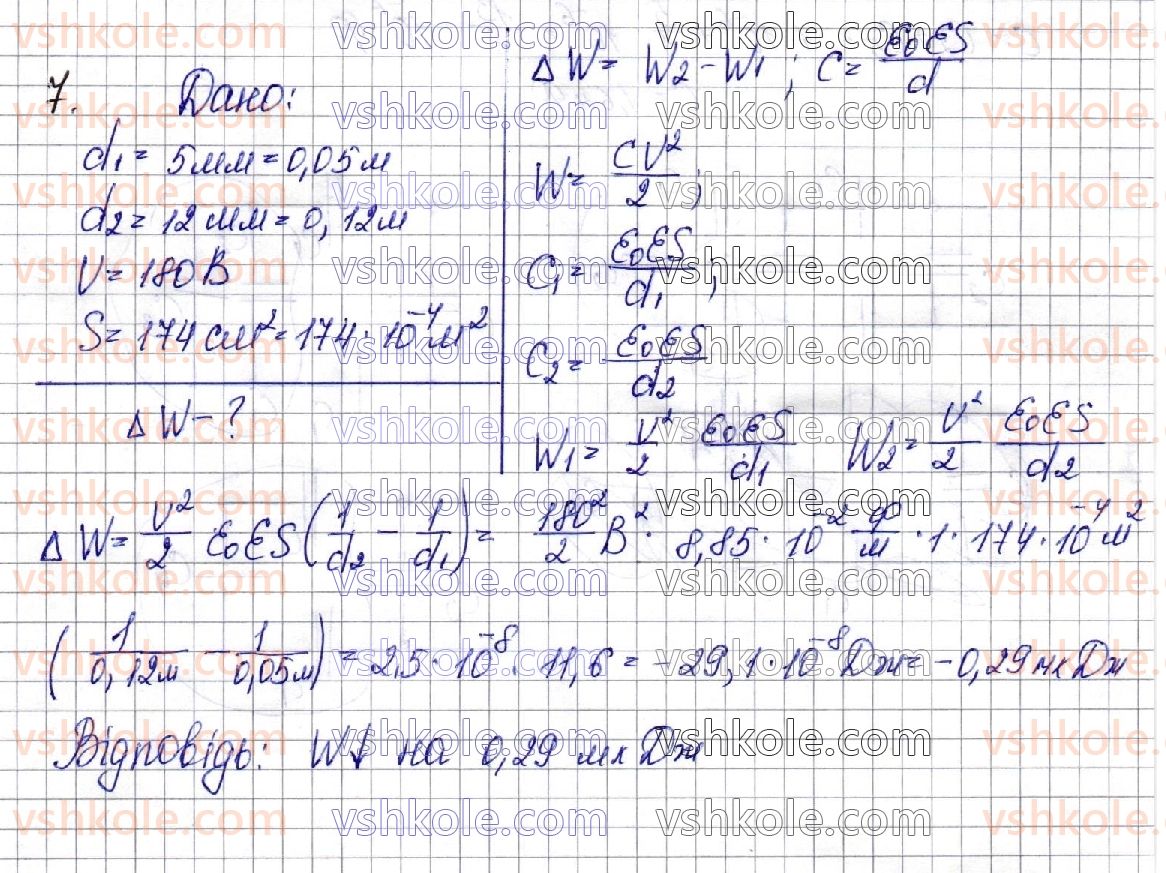 7. Дано:
d₁ = 5 мм = 0,05 м
d₂ = 12 мм = 0,12 м
U = 180 В
S = 174 см² = 174 · 10⁻⁴ м²
ΔW - ?
ΔW = W₂ - W₁ ; C = ε₀εS / d
W = CU² / 2 ;
C₁ = ε₀εS / d₁ ;
C₂ = ε₀εS / d₂
W₁ = U²/2 ε₀εS/d₁ W₂ = U²/2 ε₀εS/d₂
ΔW = U²/2 ε₀εS (1/d₂ - 1/d₁) = 180²/2 В² · 8,85 · 10⁻² Ф/м · 1 · 174 · 10⁻⁴ м²
(1/0,12м - 1/0,05м) = 2,5 · 10⁻⁸ · 11,6 = -29,1 · 10⁻⁸ Дж = -0,29 мк Дж
Відповідь: W↓ на 0,29 мк Дж
vshkole.com